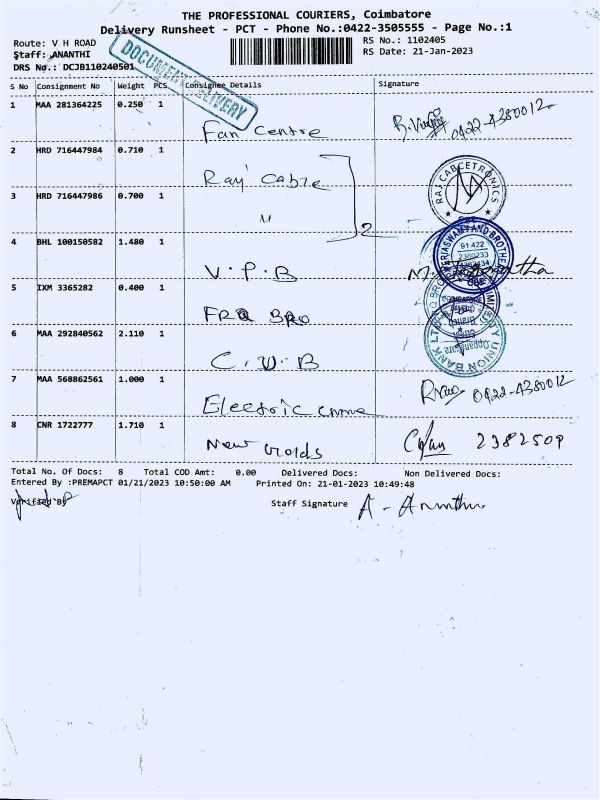 THE PROFESSIONAL COURIERS, Coimbatore
Delivery Runsheet - PCT - Phone No.:0422-3505555 - Page No.:1
Route: V H ROAD
RS No.: 1102405
Staff: ANANTHI
RS Date: 21-Jan-2023
DRS No.: DCJB110240501
DOCUMENT DELIVERY
S No Consignment No Weight PCS Consignee Details Signature
1 MAA 281364225 0.250 1
Fan Centre
0422-4380012
2 HRD 716447984 0.710 1
Raj Cable
RAJ CABCETRONICS
3 HRD 716447986 0.700 1
"
2
4 BHL 100150582 1.480 1
V.P.B
91 422
2380233
5 IXM 3365282 0.400 1
BRO
6 MAA 292840562 2.110 1
C.U.B
CITY UNION BANK LTD
7 MAA 568862561 1.000 1
Electric
0422-4380012
8 CNR 1722777 1.710 1
New
2382509
Total No. Of Docs: 8 Total COD Amt: 0.00 Delivered Docs: Non Delivered Docs:
Entered By :PREMAPCT 01/21/2023 10:50:00 AM Printed On: 21-01-2023 10:49:48
Verified By
Staff Signature